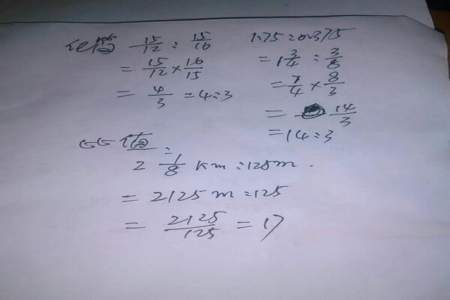 化简 15/12 : 15/16
= 15/12 × 16/15
= 4/3 = 4:3
1.75:0.375
= 1 3/4 : 3/8
= 7/4 × 8/3
= 14/3
= 14:3
比值:
2 1/8 Km:125m.
= 2125m:125
= 2125/125 = 17